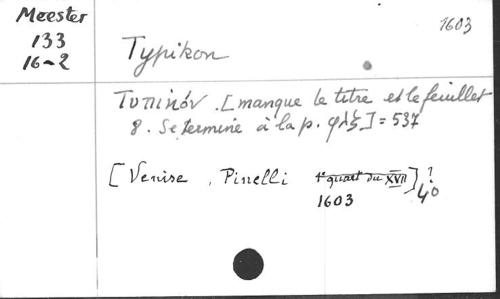 Meester
133
16-2
1603
Typikon
Τυπικόν. [manque le titre et le feuillet
8. Se termine à la p. φλζ] = 537
[Venise, Pinelli 1e quart du XVII] ?
1603
4o